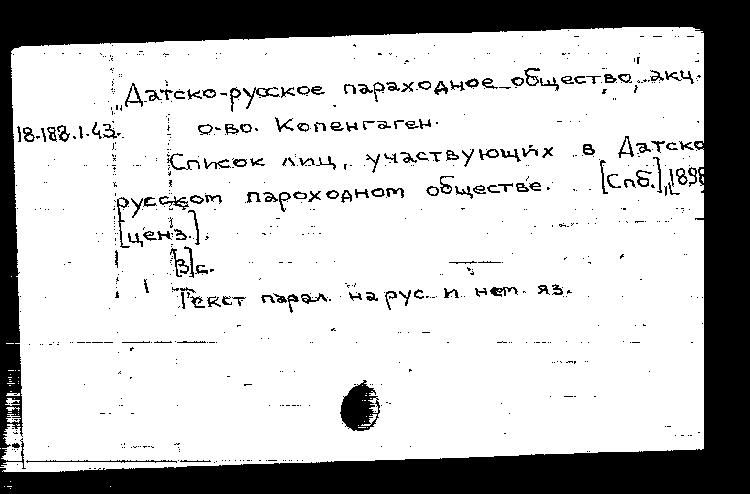 „Датско-русское параходное общество", акц.
18.188.1.43. о-во. Копенгаген.
Список лиц, участвующих в Датско
русском пароходном обществе. [Спб.], 1898
[ценз.].
[3]с.
Текст парал. на рус. и нем. яз.